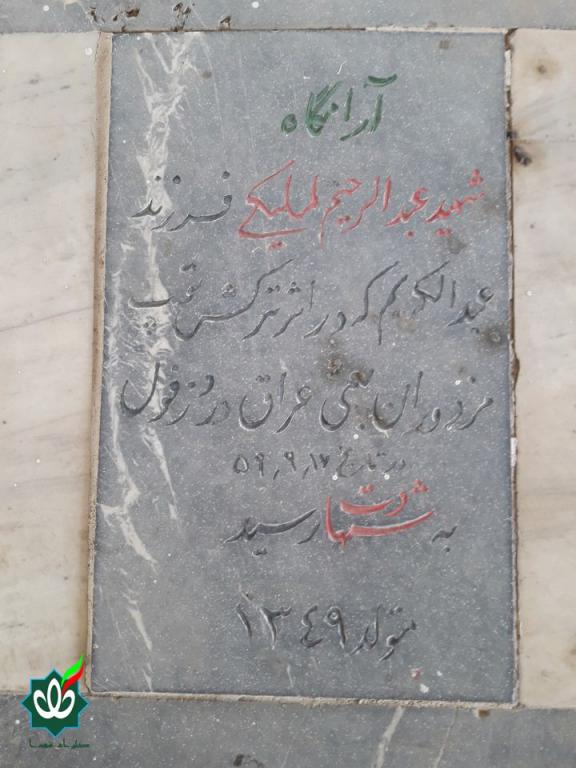 آرامگاه
شهید عبدالرحیم لملیکی فرزند
عبدالکریم که در اثر ترکش توپ
مزدوران بعثی عراق در دزفول
در تاریخ ۵۹٫۹٫۱۷
به شهادت رسید
متولد ۱۳۴۹